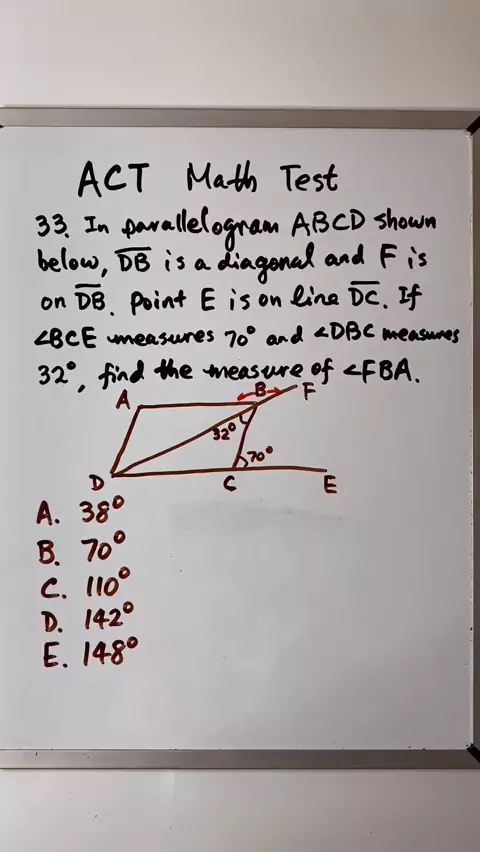 ACT Math Test
33. In parallelogram ABCD shown
below, DB is a diagonal and F is
on DB. Point E is on line DC. If
∠BCE measures 70° and ∠DBC measures
32°, find the measure of ∠FBA.
A B F
32° 70°
D C E
A. 38°
B. 70°
C. 110°
D. 142°
E. 148°